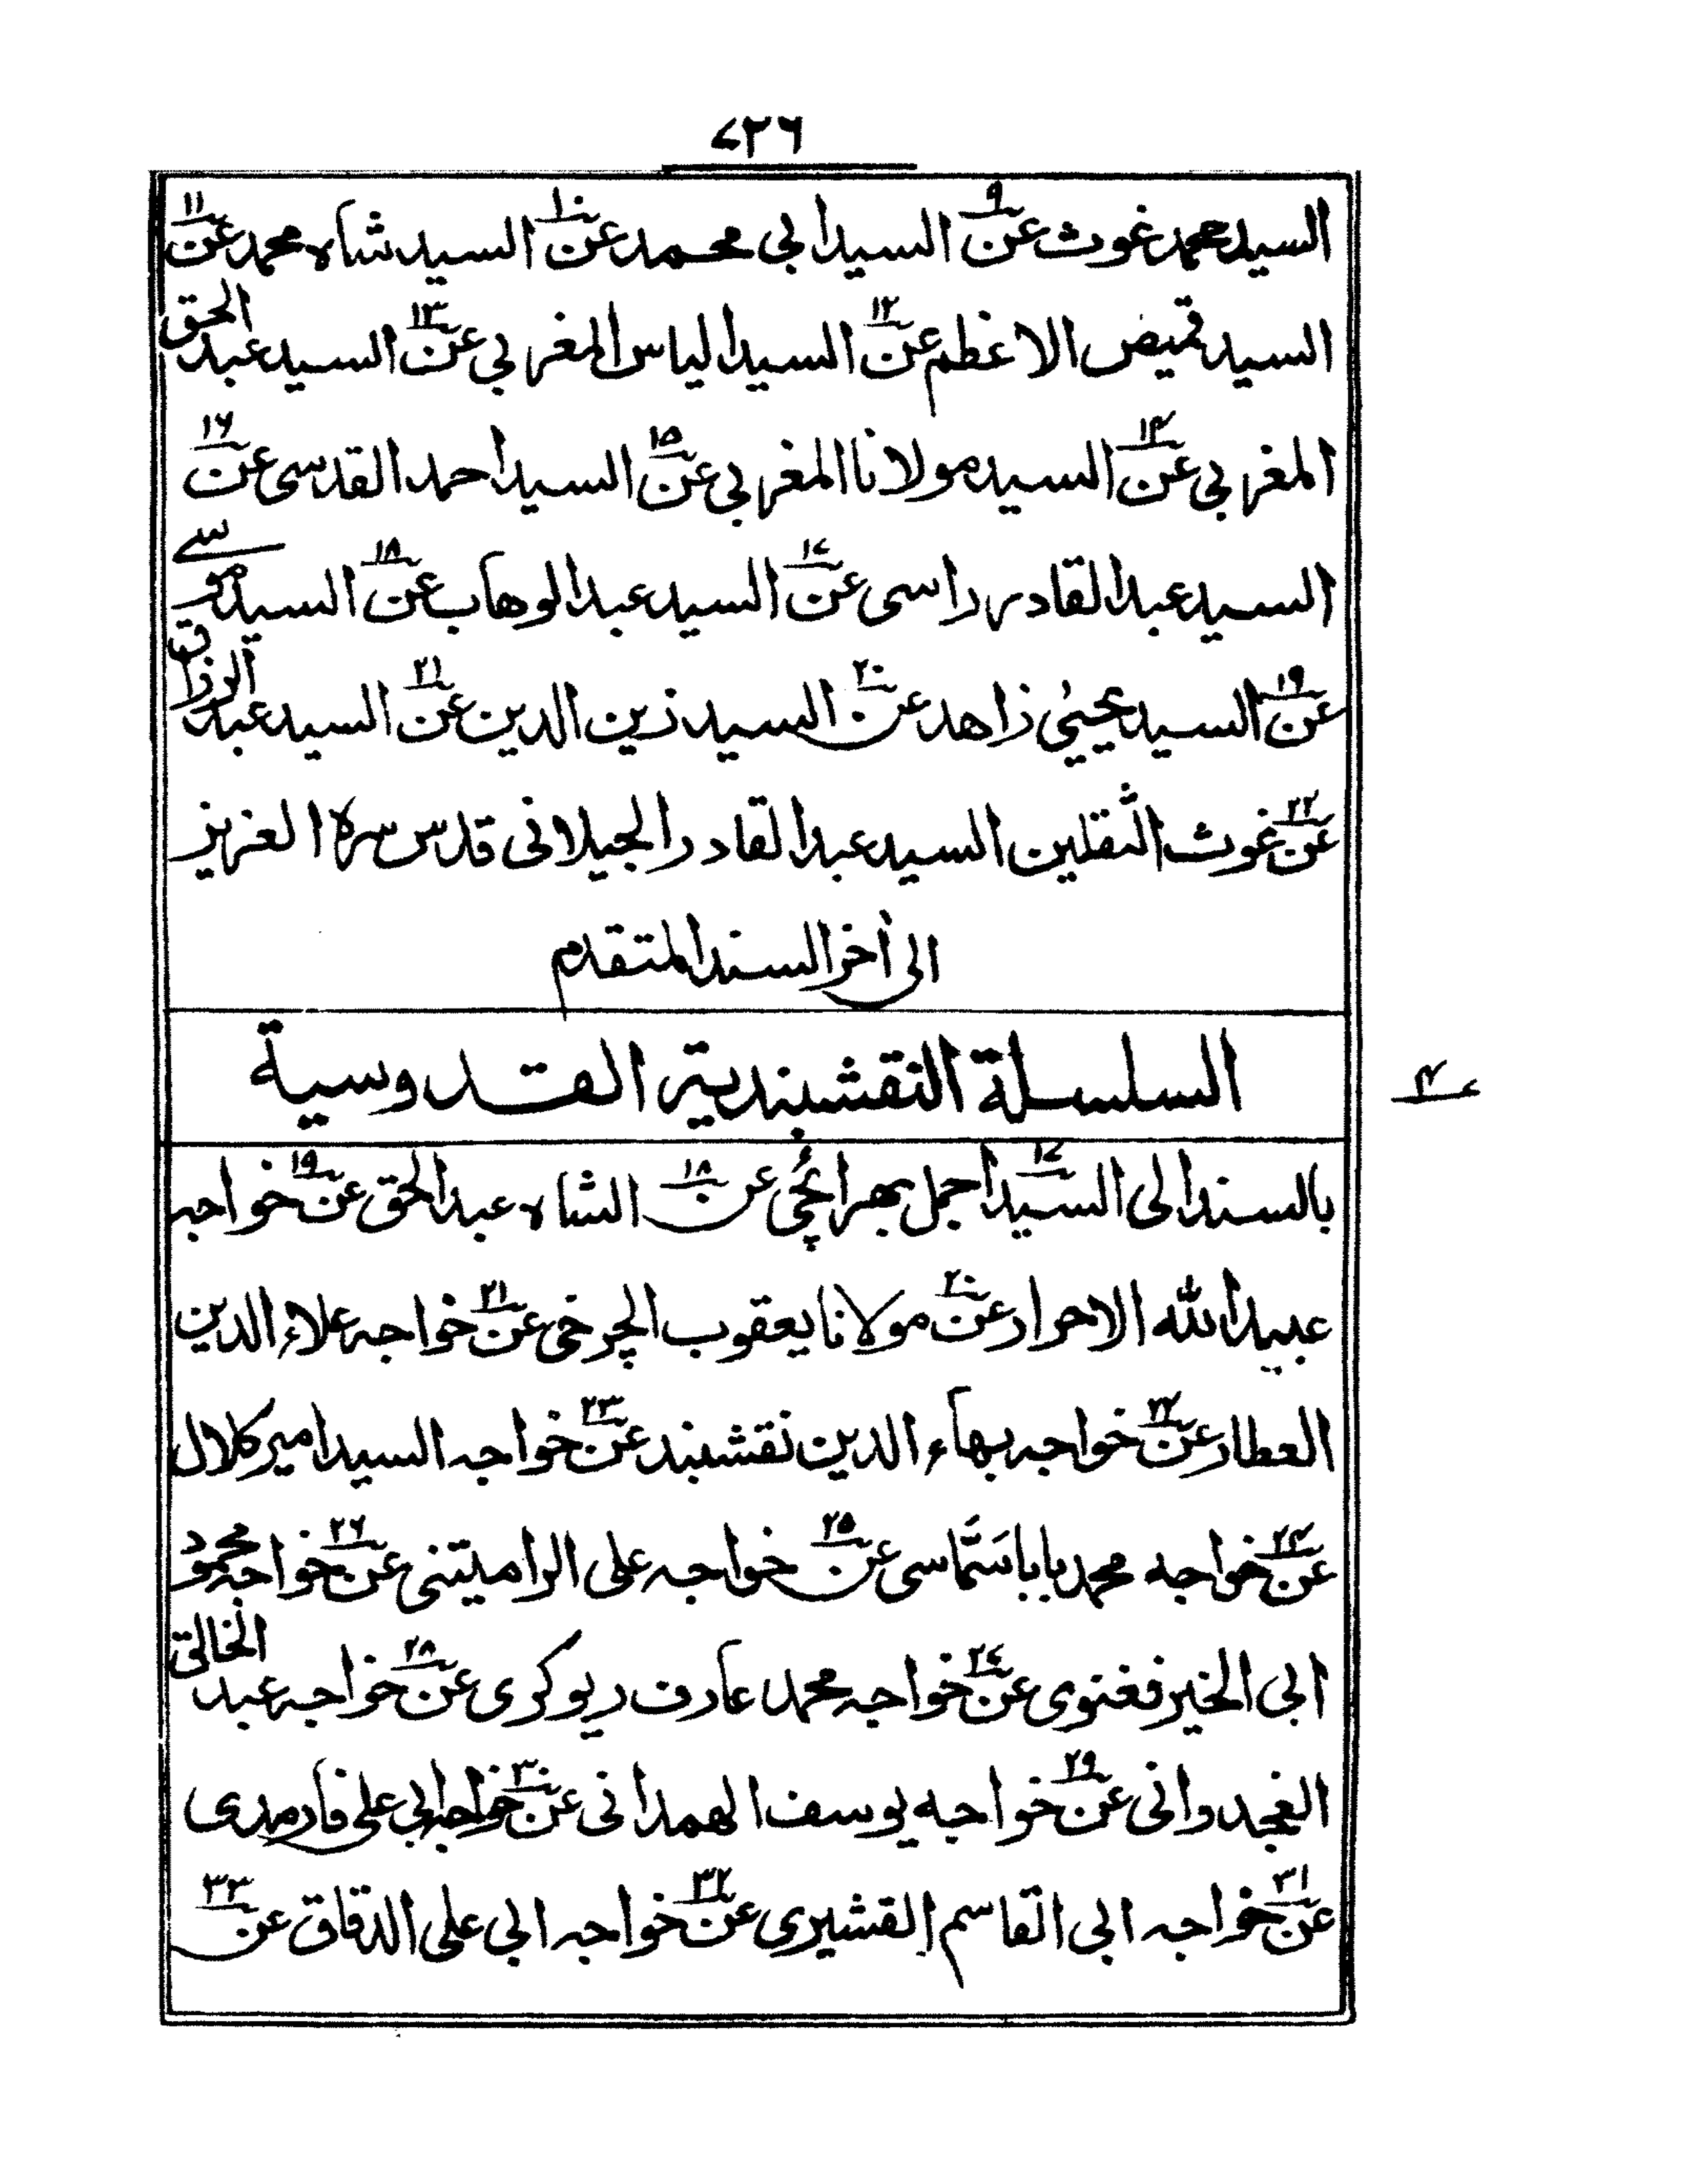 ۷۲۶
السید محمد غوث عن۹ السید ابی محمد عن۱۰ السید شاه محمد عن۱۱
السید قمیص الاعظم عن۱۲ السید الیاس المغربی عن۱۳ السید عبد الحق
المغربی عن۱۴ السید مولانا المغربی عن۱۵ السید احمد القدسی عن۱۶
السید عبد القادر راسی عن۱۷ السید عبد الوهاب عن۱۸ السید موسے
عن۱۹ السید یحییٰ زاهد عن۲۰ السید زین الدین عن۲۱ السید عبد الرزاق
عن۲۲ غوث الثقلین السید عبد القادر الجیلانی قدس سره العزیز
الی آخر السند المتقدم
السلسلة النقشبندیة القدوسیة
۴
بالسند الی السید۱۷ اجمل بهرائچی عن۱۸ الشاه عبد الحق عن۱۹ خواجه
عبید الله الاحرار عن۲۰ مولانا یعقوب الچرخی عن۲۱ خواجه علاء الدین
العطار عن۲۲ خواجه بهاء الدین نقشبند عن۲۳ خواجه السید امیر کلال
عن۲۴ خواجه محمد بابا سَمّاسی عن۲۵ خواجه علی الرامیتنی عن۲۶ خواجه محمود
ابی الخیر فغنوی عن۲۷ خواجه محمد عارف ریوکری عن۲۸ خواجه عبد الخالق
الغجدوانی عن۲۹ خواجه یوسف الهمدانی عن۳۰ خواجه ابی علی فارمدی
عن۳۱ خواجه ابی القاسم القشیری عن۳۲ خواجه ابی علی الدقاق عن۳۳